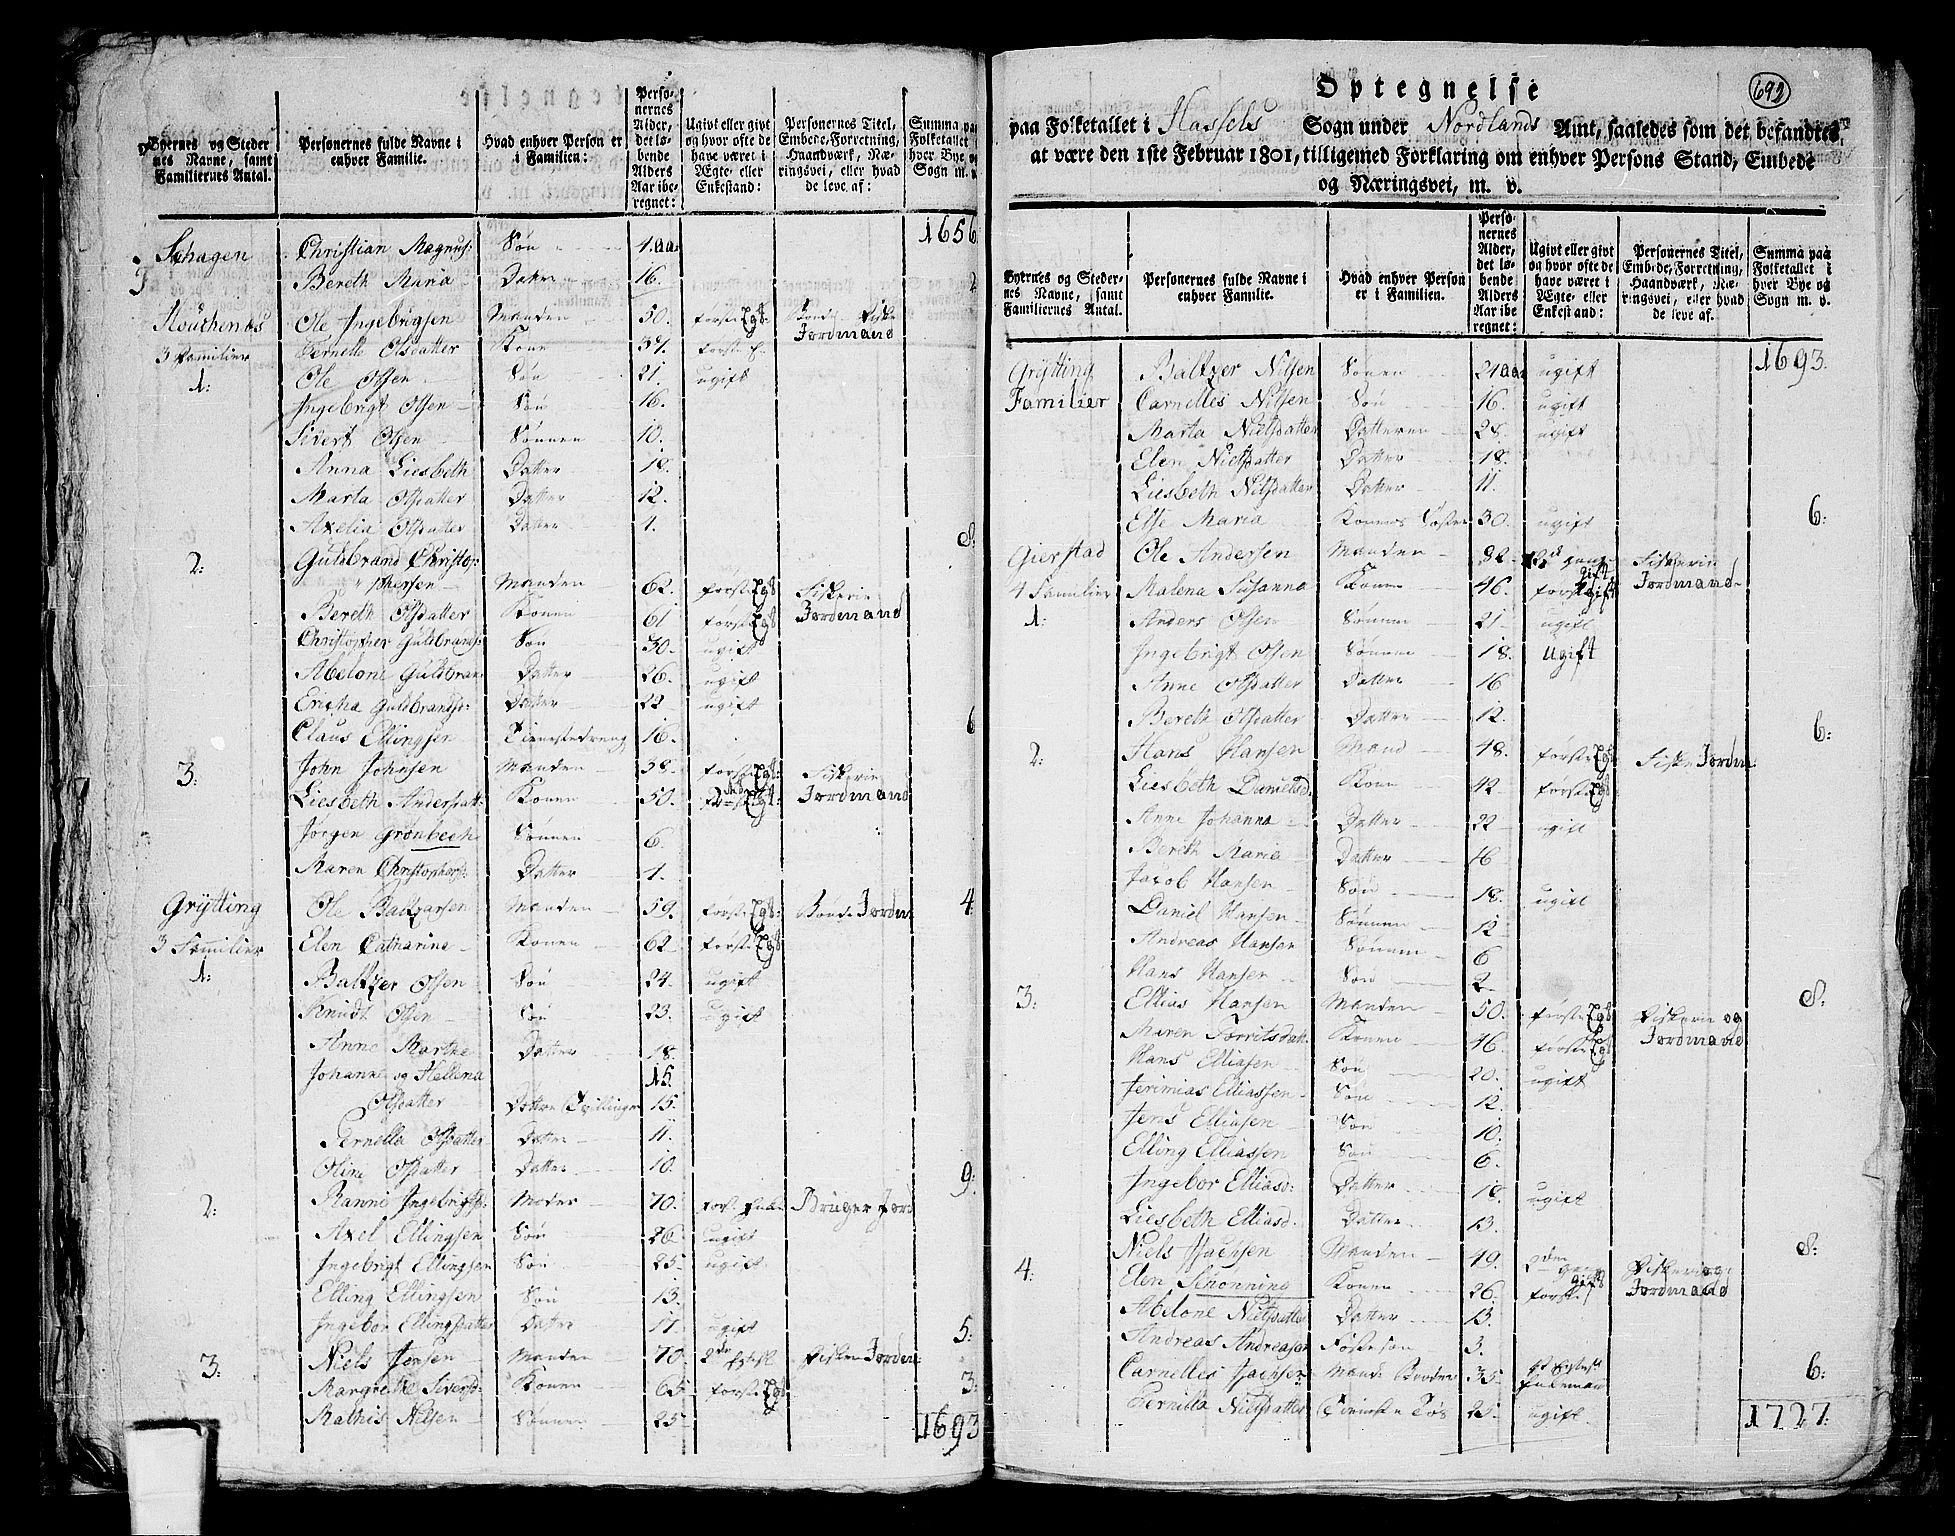 Byernes og Steder
nes Navne, samt
Familiernes Antal.
Personernes fulde Navne i
enhver Familie.
Hvad enhver Person er
i Familien:
Perso-
nernes
Alder,
det lø-
bende
Alders
Aar ibe-
regnet:
Ugivt eller givt
og hvor ofte de
have været i
Ægte- eller
Enkestand:
Personernes Titel,
Embede, Forretning,
Haandværk, Næ-
ringsvei, eller hvad
de leve af:
Summa paa
Folketallet i
hver Bye og
Sogn m. v.
1656
Schagen Christian Magnus: Søn 1.aar
Bereth Maria Datter 16. 2
Ole Ingebrigsen Manden 50. første Egt: Bonde Fisker
3 Familier Pernelle Olsdatter Kone 57. første Jordmand
1: Ole Olsen Søn 21. ugift
Ingebrigt Olsen Søn 16.
Sivert Olsen Sønnen 10.
Anna Liesbeth Datter 18.
Marta Olsdatter Datter 12.
Axelia Olsdatter Datter 4. 8.
2: Guldbrand Christop:
phersen Manden 62. første Egt Fiskerie
Bereth Olsdatter Konen 61 første Egt Jordmand
Christopher Guldbrands: Søn 30. ugift
Abelone Guldbran: Datter 26. ugift
Ericha Guldbrandsd: Datter 22 ugift
Claus Ellingsen Tienestedreng 16. 6
3: John Johnsen Manden 58. første Egt: Fiskerie
Liesbeth Andersdatt: Konen 50. Egt: Jordmand
Jørgen Grønbech Sønnen 6.
Maren Christophersd: Datter 1. 4.
Grytting Ole Baltzarsen Manden 59. første Egt: Bonde Jordm
3 Familier Elen Catharina Konen 62 første Egt
1: Baltzer Olsen Søn 24. ugift
Knudt Olsen Søn 23. ugift
Anne Marthe Datter 18.
Johanne og Hellena 15.
Olsdatter Døttre Tvillinger 15.
Pernella Olsdatter Datter 11.
Oline Olsdatter Datter 10. 9.
2: Ranni Ingebrigtsd: Moder 70. først Enke Bruger Jord
Axel Ellingsen Søn 26 ugift
Ingebrigt Ellingsen Søn 25 ugift
Elling Ellingsen Søn 13.
Ingebor Ellingsdatter Datter 17. ugift 5.
3: Niels Jensen Manden 70. Fisker Jordm
Margrethe Siversd: Konen 65 første Egt 3.
Mathis Nilsen Sønnen 25
1693
693
Optegnelse
paa Folketallet i Hassels Sogn under Nordlands Amt, saaledes som det befandtes
at være den 1ste Februar 1801, tilligemed Forklaring om enhver Persons Stand, Embede
og Næringsvei, m. v.
Byernes og Steder-
nes Navne, samt
Familiernes Antal.
Personernes fulde Navne i
enhver Familie.
Hvad enhver Person
er i Familien.
Perso-
nernes
Alder,
det lø-
bende
Alders
Aar ibe
regnet:
Ugivt eller givt
og hvor ofte de
have været i
Ægte- eller
Enkestand:
Personernes Titel,
Embede, Forretning,
Haandværk, Næ-
ringsvei, eller hvad
de leve af.
Summa paa
Folketallet i
hver Bye og
Sogn m. v.
1693.
Grytting Baltzer Nilsen Sønen 21aar ugift
Familier Carnelles Nilsen Søn 16. ugift
Marta Nielsdatter Datteren 28. ugift
Elen Nielsdatter Datter 18.
Liesbeth Nilsdatter Datter 11.
Else Maria Konens Søster 30. ugift 6:
Gierstad Ole Andersen Manden 52. Fiskerie
4 Familier Malena Susanna Konen 46. første gift Jordmand
1: Anders Olsen Sønnen 21 ugift
Ingebrigt Olsen Sønnen 18. Ugift
Anne Olsdatter Datter 16
Bereth Olsdatter Datter 12. 6:
2: Hans Hansen Mand 48. første Egt Fisker Jordm:
Liesbeth Danielsd: Kone 42 første Egt
Anne Johanna Datter 22 ugift
Bereth Maria Datter 16
Jacob Hansen Søn 18. ugift
Daniel Hansen Sønnen 12
Andreas Hansen Sønnen 6
Hans Hansen Søn 2 8.
3: Ellias Hansen Manden 50. første Egt Fiskerie og
Maren Konen 46. første Egt Jordmand
Hans Elliasen Søn 20. ugift
Jerimias Elliassen Søn 12.
Jens Elliasen Søn 10.
Elling Elliassen Søn 6.
Ingebor Elliasd: Datter 18. ugift
Liesbeth Elliasd. Datter 13. 8:
4: Niels Jachsen Manden 49. 2den gang gift Fiskerie og
Elen Simonning Konen 26. først Jordmand
Abelone Nielsdatter Datter 13.
Andreas Andreasen Fostersøn 3.
Carnelles Jachsen Mands Broder 35 Enkemand 6:
Pernilla Nielsdatter Tieneste Tøs 25. ugift
1727.